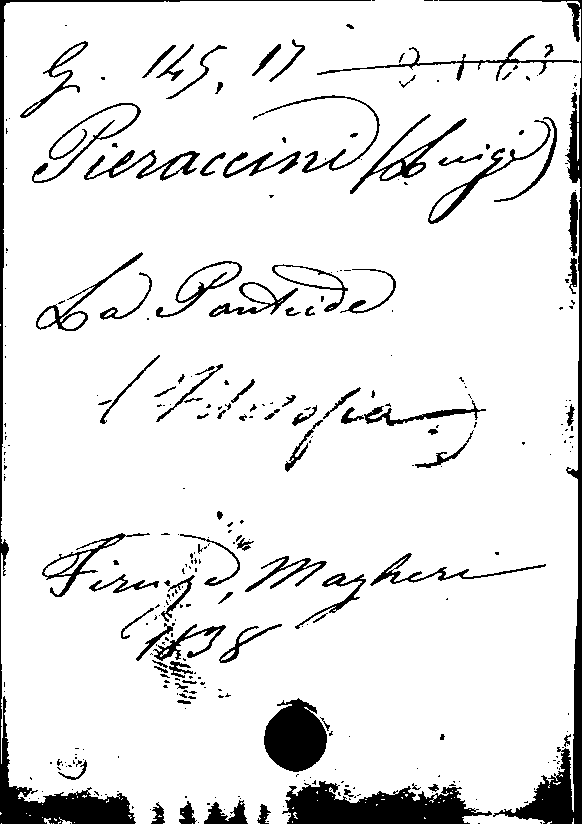 G. 145, 17
Pieraccini (Luigi)
La Panteide
(Filosofia)
Firenze, Magheri
1838